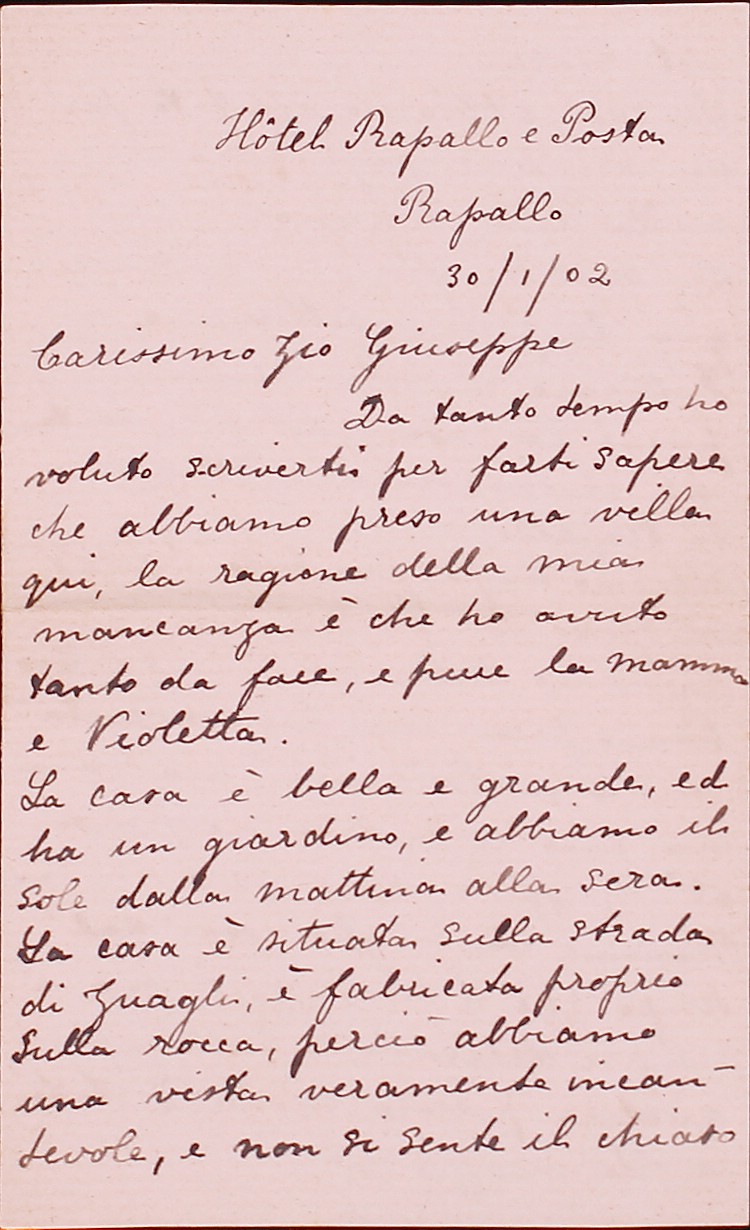 Hôtel Rapallo e Posta
Rapallo
30/1/02
Carissimo Zio Giuseppe
Da tanto tempo ho
voluto scriverti per farti sapere
che abbiamo preso una villa
qui, la ragione della mia
mancanza è che ho avuto
tanto da fare, e pure la mamma
e Violetta.
La casa è bella e grande, ed
ha un giardino, e abbiamo il
sole dalla mattina alla sera.
La casa è situata sulla strada
di Zuagli, è fabricata proprio
sulla rocca, perciò abbiamo
una vista veramente incan-
tevole, e non si sente il chiaso